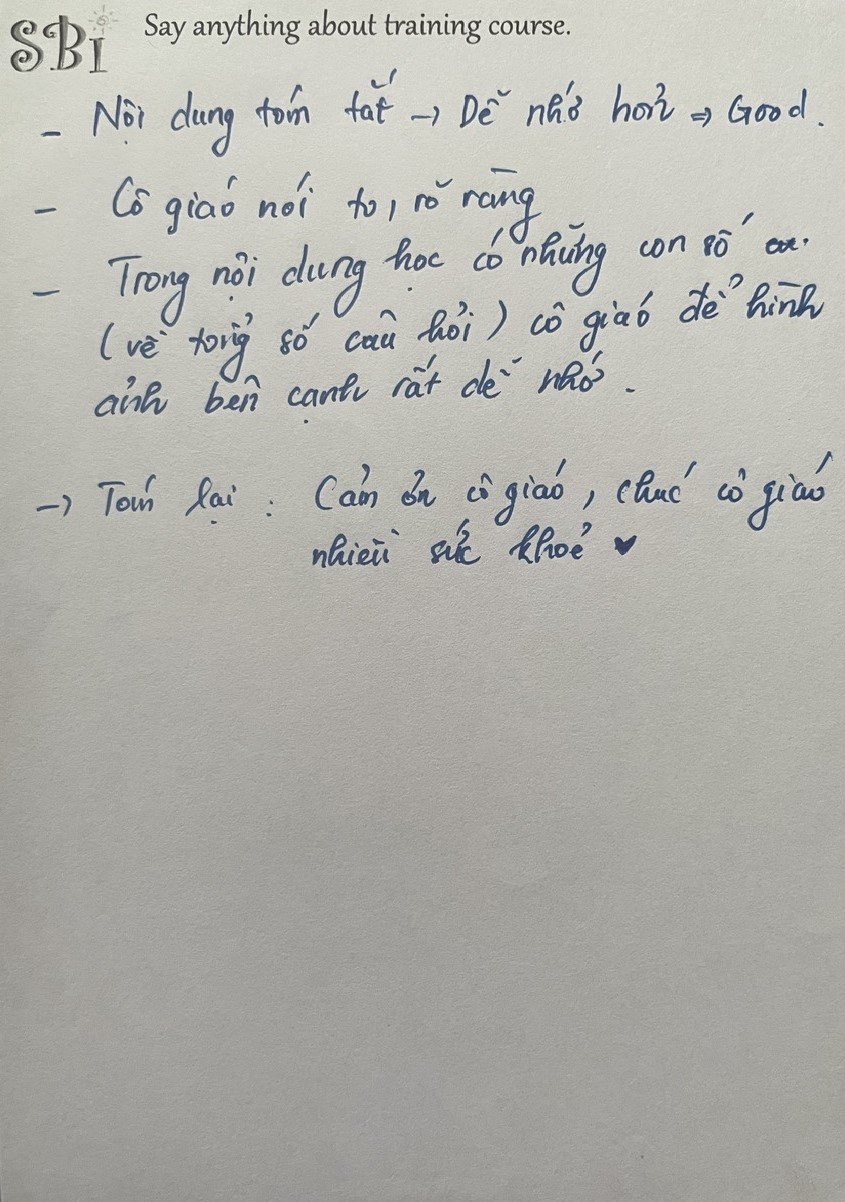 SBI Say anything about training course.
- Nội dung tóm tắt → Dễ nhớ hơn ⇒ Good.
- Cô giáo nói to, rõ ràng
- Trong nội dung học có những con số
(về tổng số câu hỏi) cô giáo để hình
ảnh bên cạnh rất dễ nhớ.
→ Tóm lại : Cảm ơn cô giáo, chúc cô giáo
nhiều sức khoẻ ♥